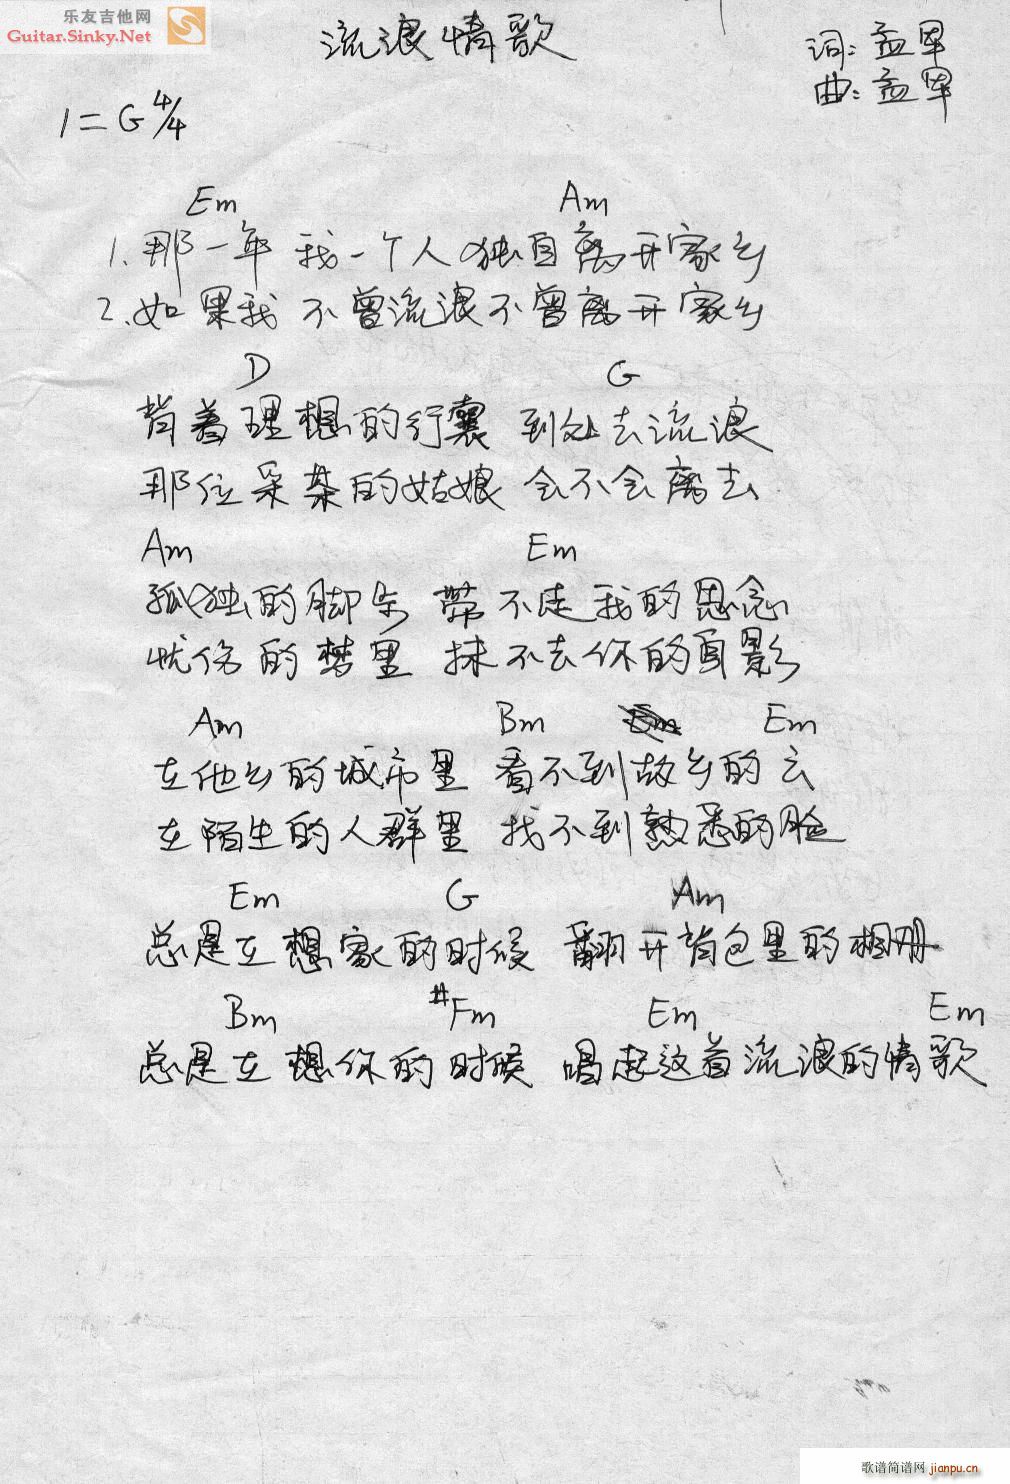 乐友吉他网
Guitar.Sinky.Net
流浪情歌
词:孟军
曲:孟军
1=G 4/4
Em Am
1.那一年 我一个人独自离开家乡
2.如果我 不曾流浪不曾离开家乡
D G
背着理想的行囊 到处去流浪
那位采桑的姑娘 会不会离去
Am Em
孤独的脚步 带不走我的思念
忧伤的梦里 抹不去你的身影
Am Bm Em
在他乡的城市里 看不到故乡的云
在陌生的人群里 找不到熟悉的脸
Em G Am
总是在想家的时候 翻开背包里的相册
Bm #Fm Em Em
总是在想你的时候 唱起这首流浪的情歌
歌谱简谱网 jianpu.cn